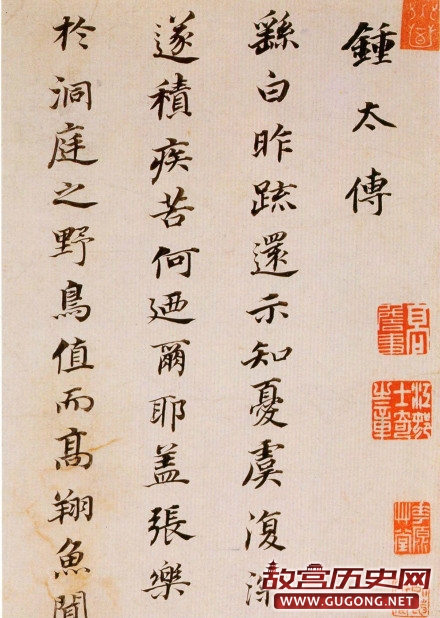 鍾太傅
繇白昨疏還示知憂虞復深
遂積疾苦何迺爾耶蓋張樂
於洞庭之野鳥值而高翔魚聞
故宫历史网
www.GUGONG.NET